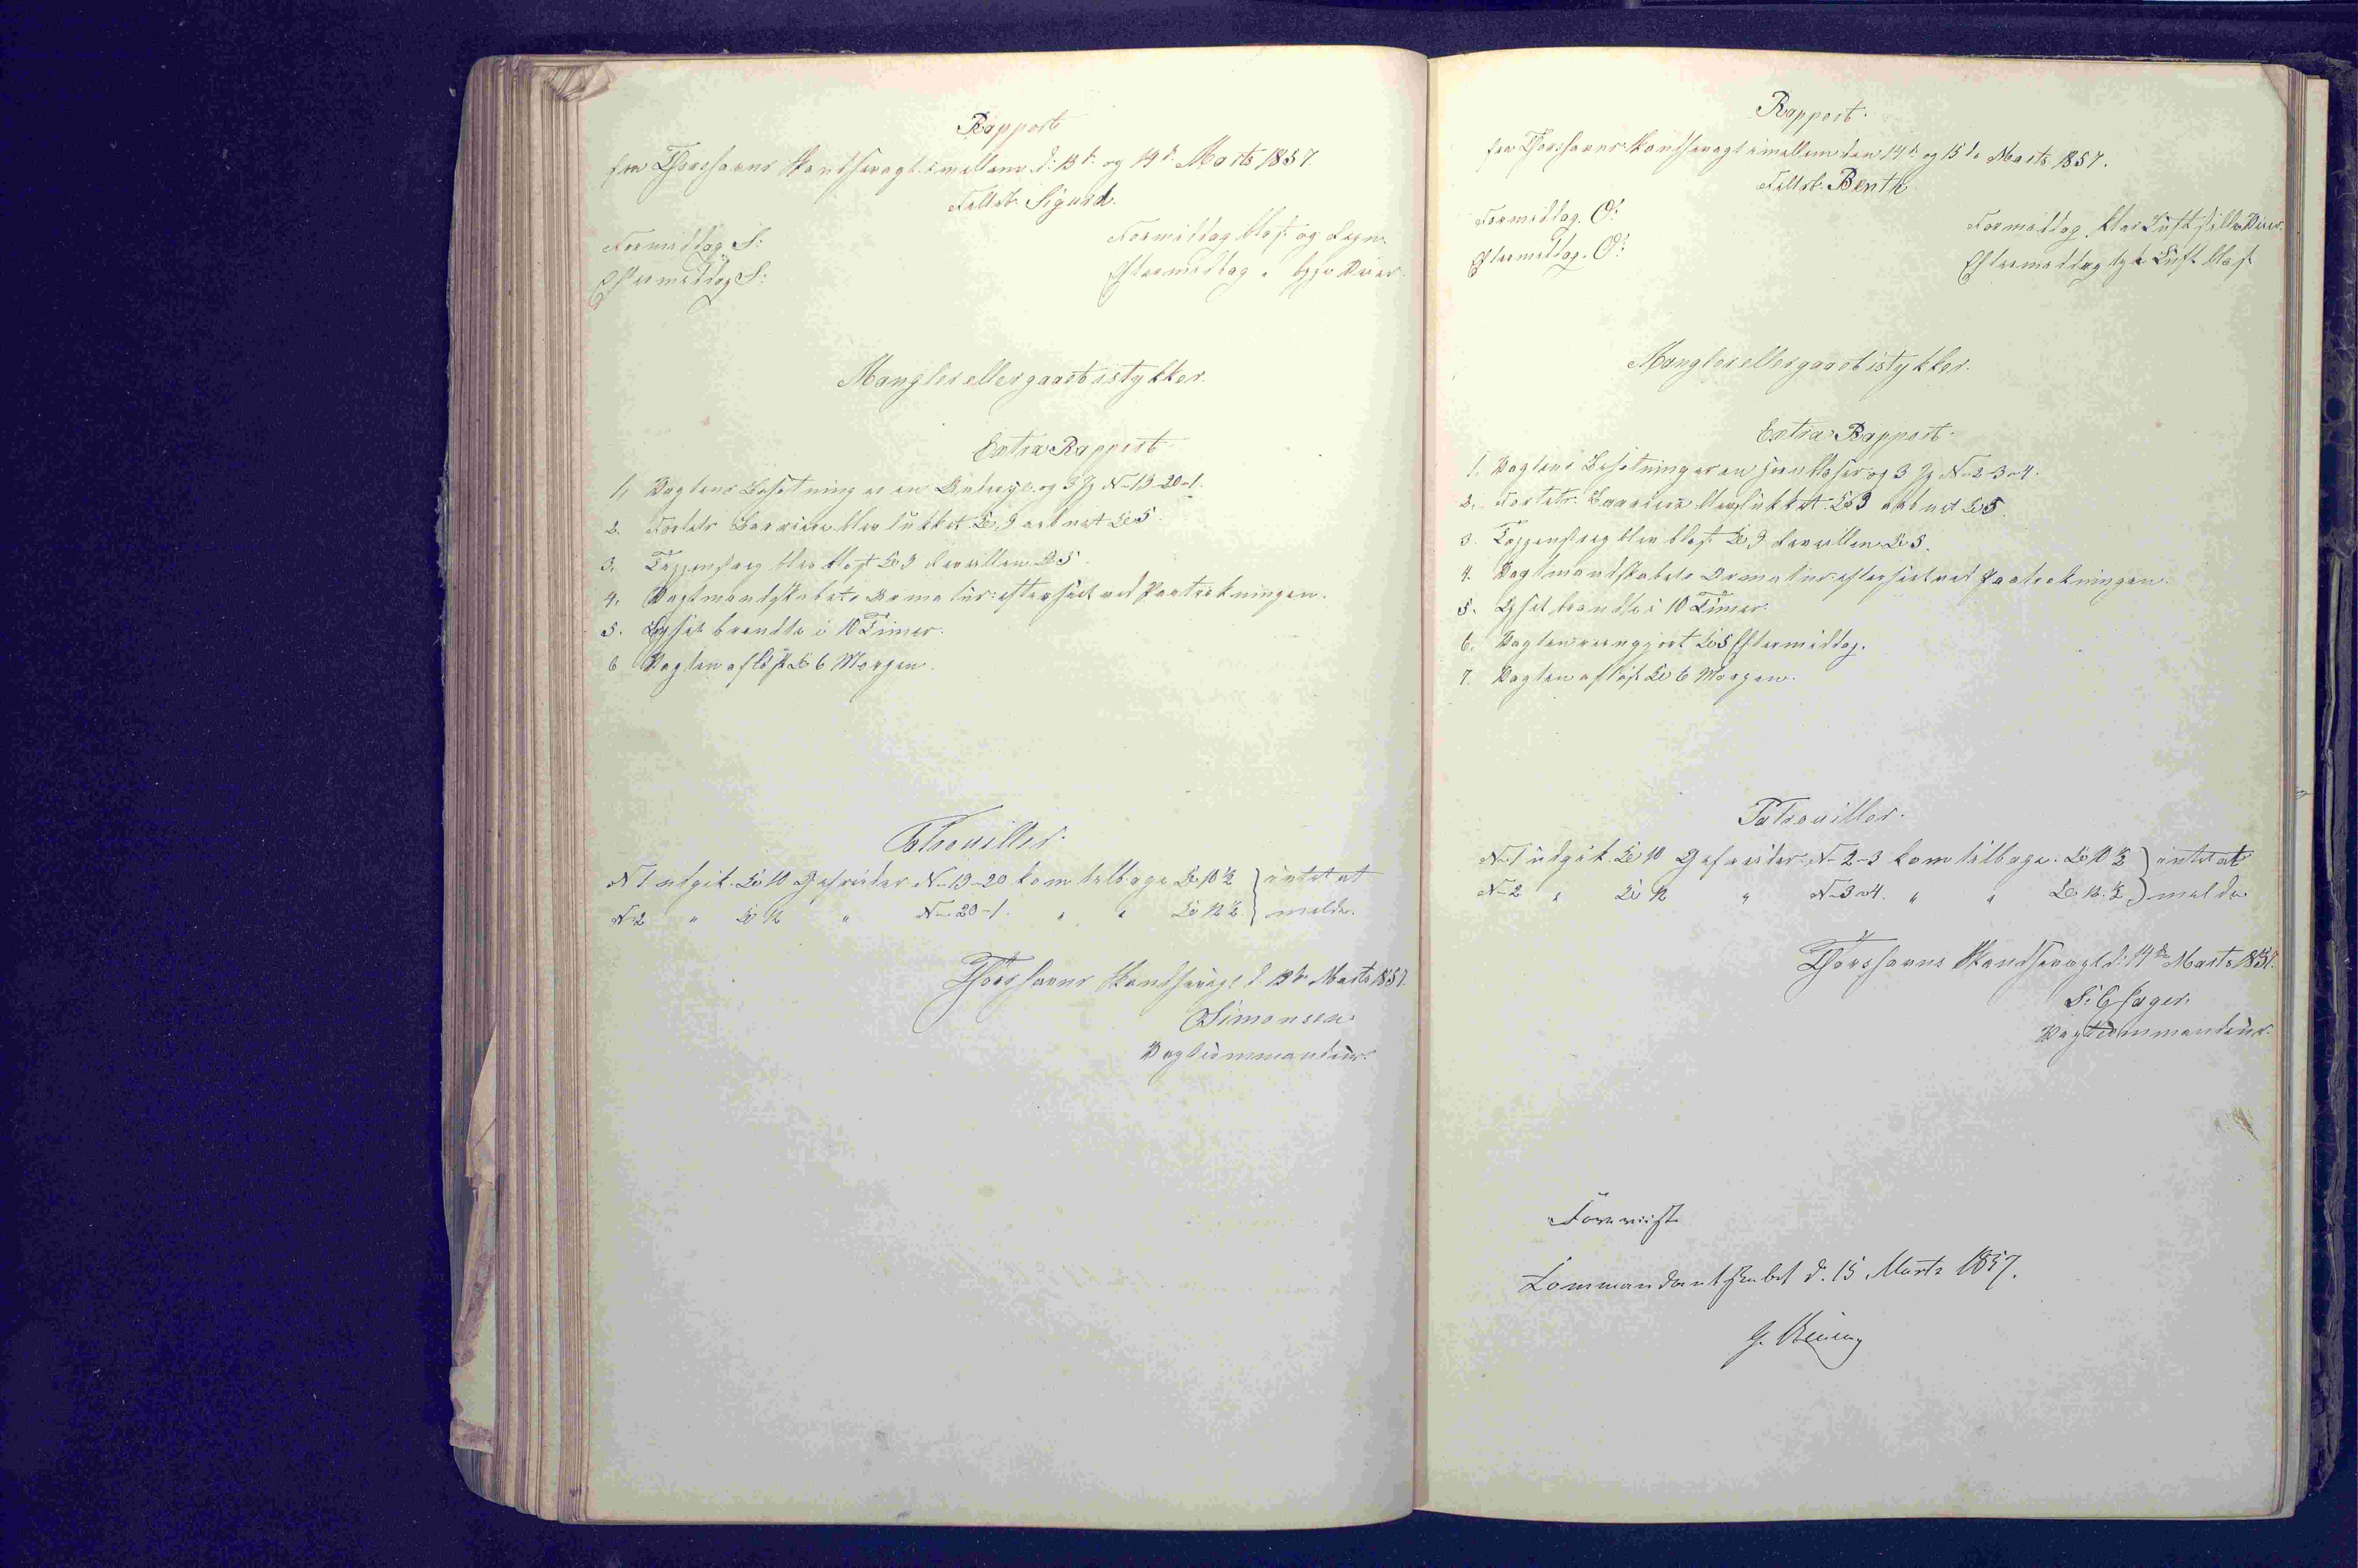 Rapport
fra Thorshavns Skandsevagt imellem d: 13de og 14de Marts 1857.
Feltrb. Sigurd.
Formiddag S:
Eftermiddag S:
Formiddag blæst og Regn.
Eftermiddag
Mangler eller gaaet istykker.
Extra Rapport
1, Vagtens Besætning er en og 3 J N-19-20-1.
2. Fortets Barriere blev lukket Kl 9 aabnet Kl 5.
3. Tappenstreg blev blæst Kl 9 Reveillen Kl 5.
4. Vagtmandskabets Armatur efterseet ved Paatrækningen.
5. Lyset brændte i 10 Timer.
6 Vagten afløst Kl 6 Morgen.
Patrouiller.
N 1 udgik Kl 10 Gefreider N-19-20 kom tilbage Kl 10½ } intet at
N-2 " Kl 12 " N-20-1. " " Kl 12½ } melde.
Thorshavns Skandsevagt d. 13de Marts 1857.
Simonsen
Vagtcommandeur.
Rapport.
fra Thorshavns Skandsevagt imellem den 14de og 15de Marts 1857.
Feltrb. Benth
Formiddag. O:
Eftermiddag. O:
Formiddag klar Luft stille Veier.
Eftermiddag tyk Luft blæst
Mangler eller gaaet istykker.
Extra Rapport.
1. Vagtens Besætning er en og 3 J N-2-3-4.
2. Fortets Barriere blev lukket Kl 9 aabnet Kl 5.
3. Tappenstreg blev blæst Kl 9 Reveillen Kl 5.
4. Vagtmandskabets Armatur efterseet ved Paatrækningen.
5. Lyset brændte i 10 Timer.
6. Vagten reengjort Kl 5 Eftermiddag.
7. Vagten afløst Kl 6 Morgen.
Patrouiller.
N-1 udgik Kl 10 Gefreider N-2-3 kom tilbage Kl 10½ } intet at
N-2 " Kl 12 " N-3-4. " " Kl 12½ } melde
Thorshavns Skandsevagt d: 14de Marts 1857.
Vagtcommandeur.
Foreviist
Commandantskabet d. 15 Marts 1857.